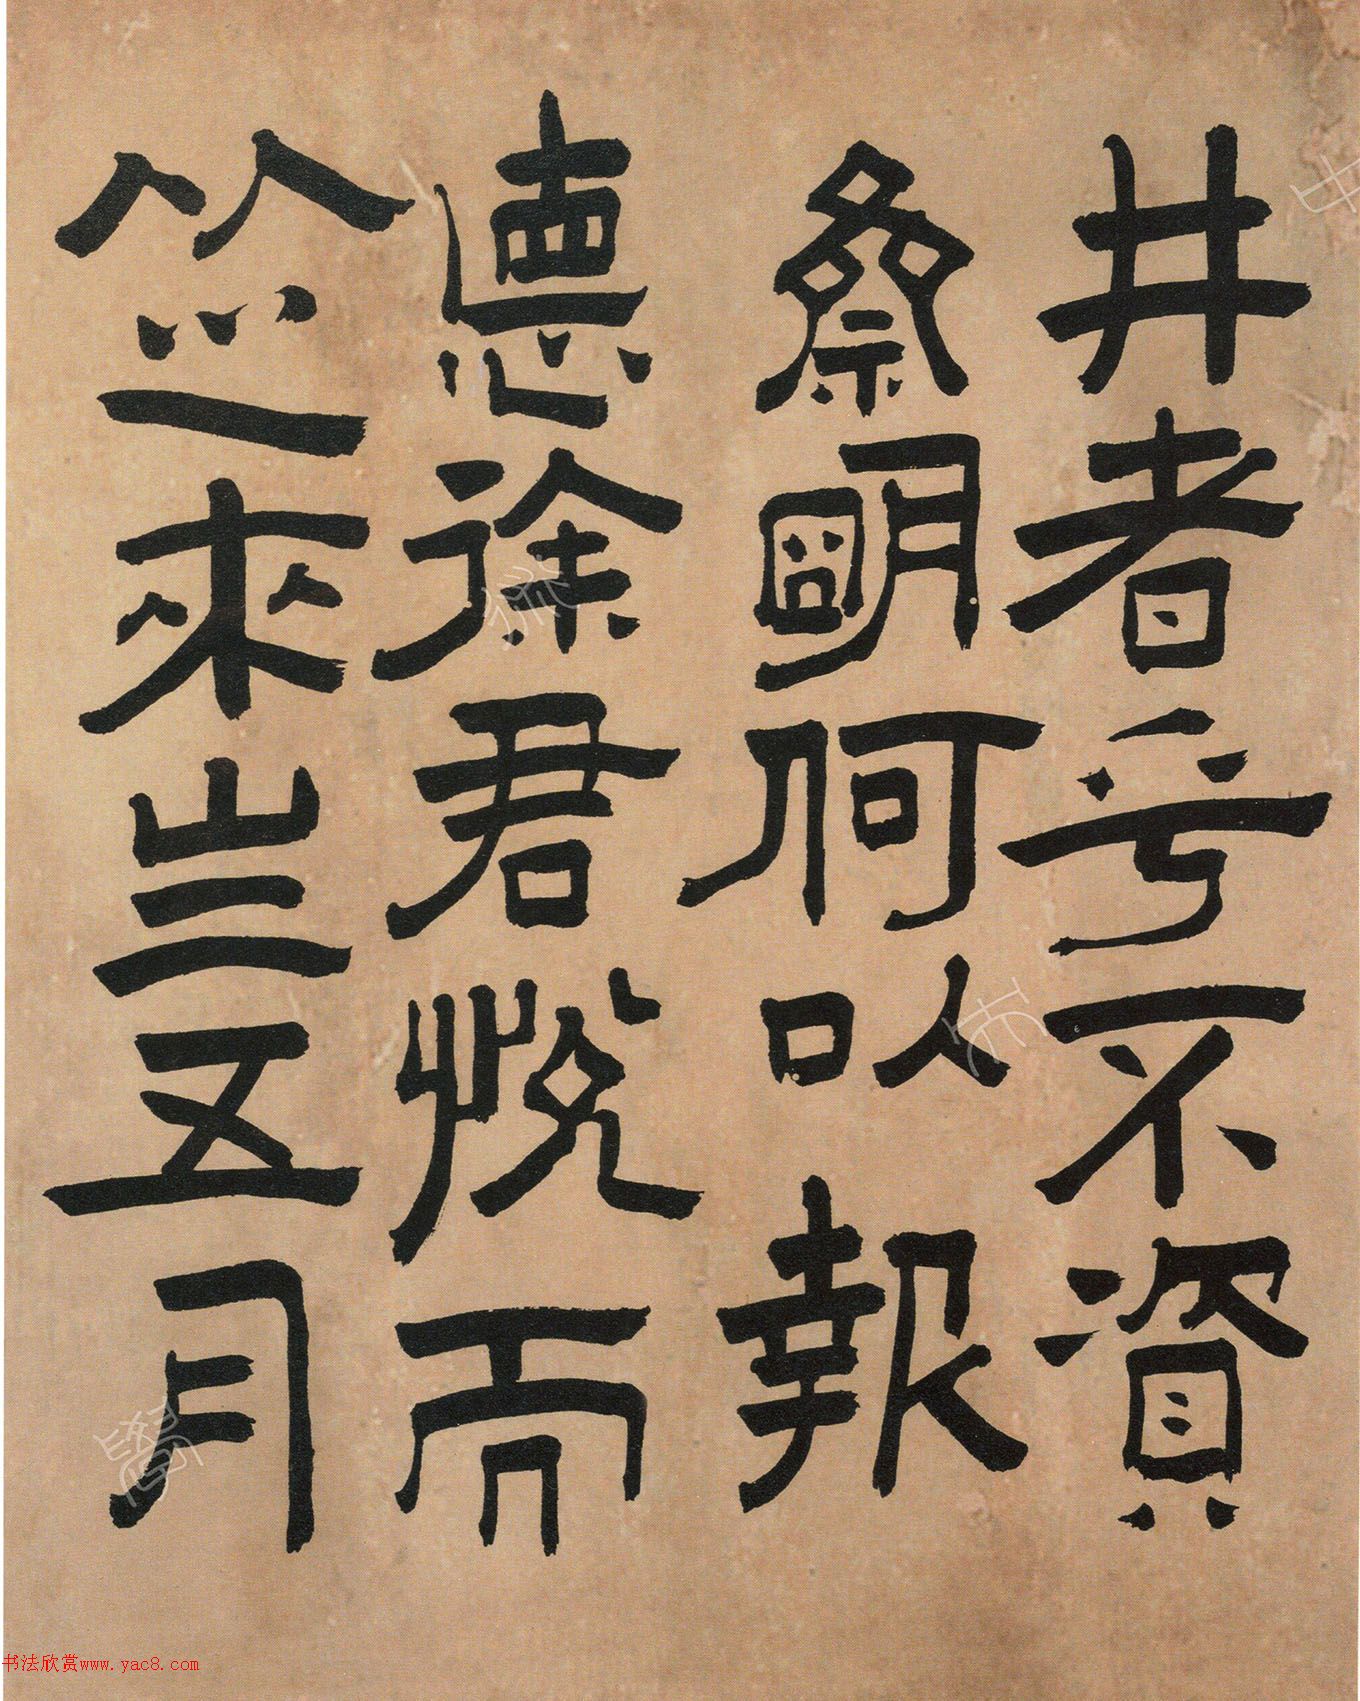 井者乎不資
祭明何以報
德徐君悅而
來五月
书法欣赏www.yac8.com